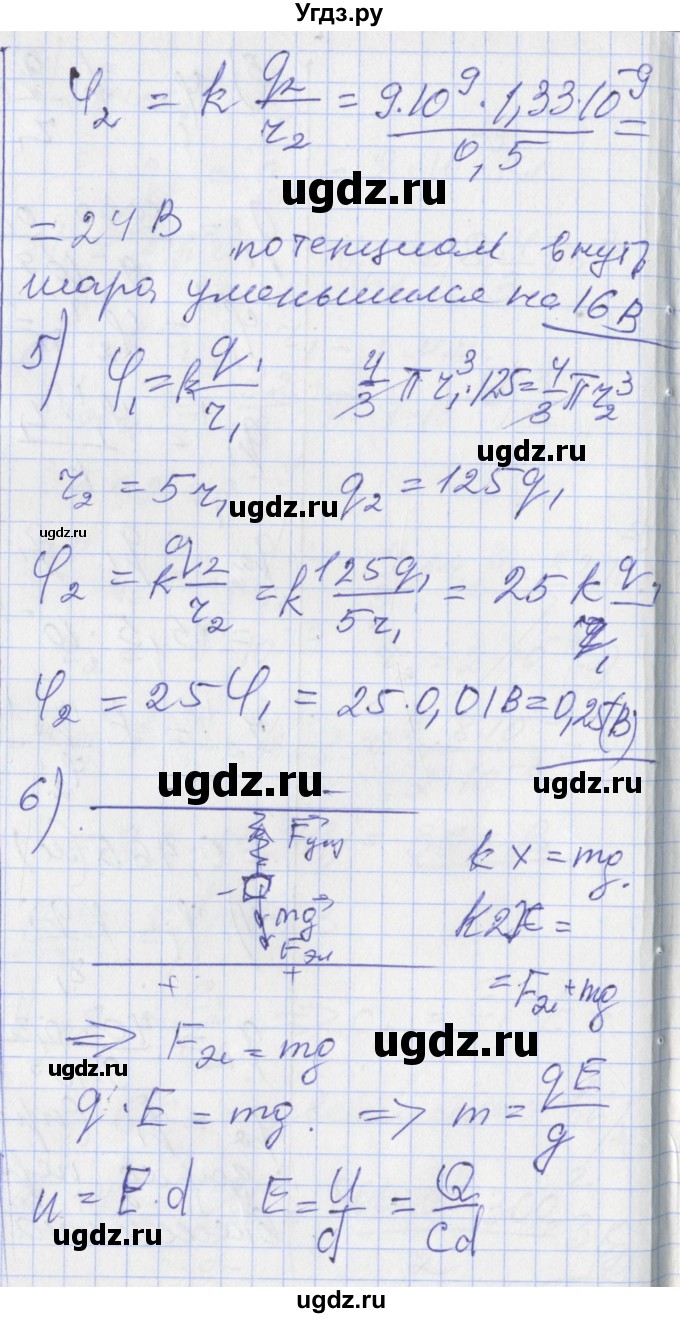 Угдз.ру
φ₂ = k q₂/r₂ = 9·10⁹·1,33·10⁻⁹/0,5 =
ugdz.ru
= 24 В потенциал внутр
шара уменьшился на 16 В
5) φ₁ = k q₁/r₁ 4/3 π r₁³·125 = 4/3 π r₂³
ugdz.ru
r₂ = 5r₁ q₂ = 125q₁
ugdz.ru
ugdz.ru
φ₂ = k q₂/r₂ = k 125q₁/5r₁ = 25 k q₁/r₁
φ₂ = 25φ₁ = 25·0,01В = 0,25(В)
ugdz.ru
ugdz.ru
6) −
F упр kx = mg.
− mg k2x =
Fэл
+ + = Fэл + mg
=> Fэл = mg
ugdz.ru
ugdz.ru
q·E = mg. => m = qE/g
u = E·d E = U/d = Q/cd
ugdz.ru
ugdz.ru